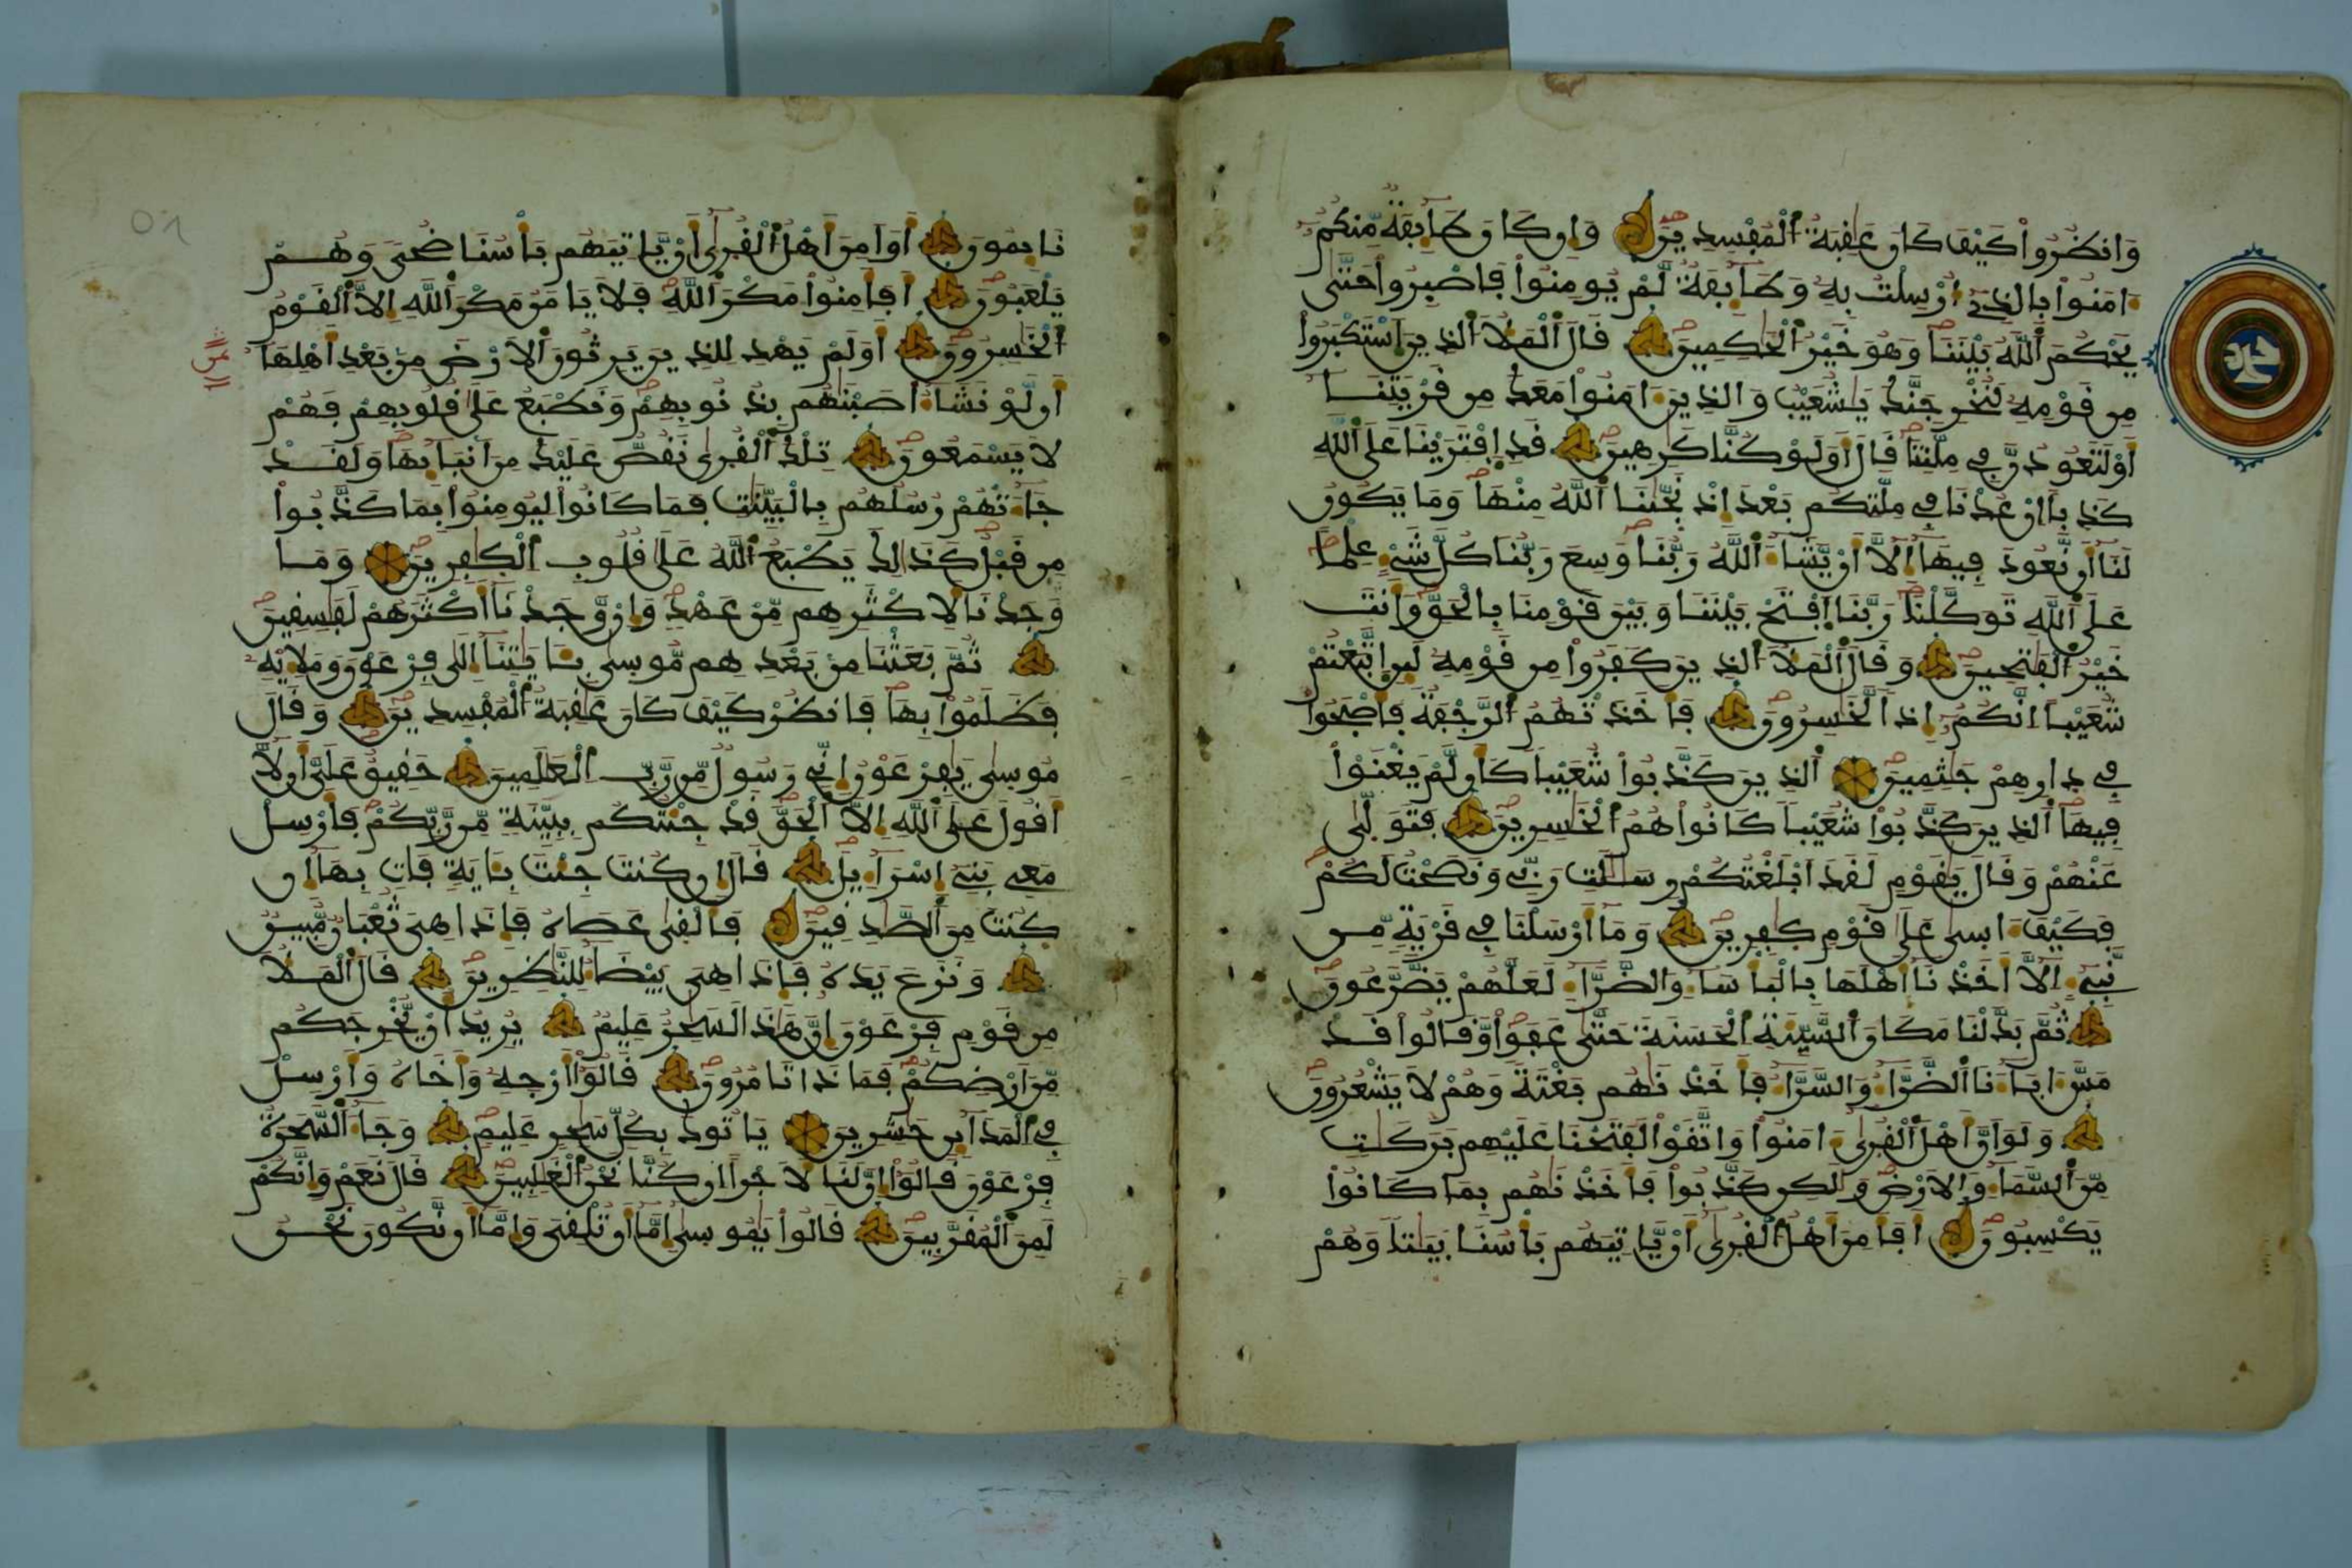 وَانظُرُواْ كَيْفَ كَانَ عَٰقِبَةُ اُ۬لْمُفْسِدِينَ وَإِن كَانَ طَآئِفَةٞ مِّنكُمُۥٓ
ءَامَنُواْ بِالذِےٓ أُرْسِلْتُ بِهِۦ وَطَآئِفَةٞ لَّمْ يُومِنُواْ فَاصْبِرُواْ حَتَّىٰ
يَحْكُمَ اَ۬للَّهُ بَيْنَنَا وَهُوَ خَيْرُ اُ۬لْحَٰكِمِينَ قَالَ اَ۬لْمَلَأُ اُ۬لذِينَ اَ۪سْتَكْبَرُواْ
مِن قَوْمِهِۦ لَنُخْرِجَنَّكَ يَٰشُعَيْبُ وَالذِينَ ءَامَنُواْ مَعَكَ مِن قَرْيَتِنَآ
أَوْ لَتَعُودُنَّ فِے مِلَّتِنَا قَالَ أَوَلَوْ كُنَّا كَٰرِهِينَ قَدِ اِ۪فْتَرَيْنَا عَلَى اَ۬للَّهِ
كَذِباً اِنْ عُدْنَا فِے مِلَّتِكُم بَعْدَ إِذْ نَجَّىٰنَا اَ۬للَّهُ مِنْهَا وَمَا يَكُونُ
لَنَآ أَن نَّعُودَ فِيهَآ إِلَّآ أَنْ يَّشَآءَ اَ۬للَّهُ رَبُّنَا وَسِعَ رَبُّنَا كُلَّ شَےْءٍ عِلْماً
عَلَى اَ۬للَّهِ تَوَكَّلْنَا رَبَّنَا اَ۪فْتَحْ بَيْنَنَا وَبَيْنَ قَوْمِنَا بِالْحَقِّ وَأَنتَ
خَيْرُ اُ۬لْفَٰتِحِينَ وَقَالَ اَ۬لْمَلَأُ اُ۬لذِينَ كَفَرُواْ مِن قَوْمِهِۦ لَئِنِ اِ۪تَّبَعْتُمْ
شُعَيْباً اِنَّكُمُۥٓ إِذاٗ لَّخَٰسِرُونَ فَأَخَذَتْهُمُ اُ۬لرَّجْفَةُ فَأَصْبَحُواْ
فِے دِارِهِمْ جَٰثِمِينَ اَ۬لذِينَ كَذَّبُواْ شُعَيْباٗ كَأَن لَّمْ يَغْنَوْاْ
فِيهَا اَ۬لذِينَ كَذَّبُواْ شُعَيْباٗ كَانُواْ هُمُ اُ۬لْخَٰسِرِينَ فَتَوَلَّىٰ
عَنْهُمْ وَقَالَ يَٰقَوْمِ لَقَدَ اَبْلَغْتُكُمْ رِسَٰلَٰتِ رَبِّے وَنَصَحْتُ لَكُمْ
فَكَيْفَ ءَاسِىٰ عَلَىٰ قَوْمٖ كٰ۪فِرِينَ وَمَآ أَرْسَلْنَا فِے قَرْيَةٖ مِّن
نَّبِےٓءٍ اِلَّآ أَخَذْنَآ أَهْلَهَا بِالْبَأْسَآءِ وَالضَّرَّآءِ لَعَلَّهُمْ يَضَّرَّعُونَ
ثُمَّ بَدَّلْنَا مَكَانَ اَ۬لسَّيِّئَةِ اِ۬لْحَسَنَةَ حَتَّىٰ عَفَواْ وَّقَالُواْ قَدْ
مَسَّ ءَابَآءَنَا اَ۬لضَّرَّآءُ وَالسَّرَّآءُ فَأَخَذْنَٰهُم بَغْتَةٗ وَهُمْ لَا يَشْعُرُونَ
وَلَوَ اَنَّ أَهْلَ اَ۬لْقُر۪ىٰٓ ءَامَنُواْ وَاتَّقَوْاْ لَفَتَحْنَا عَلَيْهِم بَرَكَٰتٖ
مِّنَ اَ۬لسَّمَآءِ وَالَارْضِ وَلَٰكِن كَذَّبُواْ فَأَخَذْنَٰهُم بِمَا كَانُواْ
يَكْسِبُونَ أَفَأَمِنَ أَهْلُ اُ۬لْقُر۪ىٰٓ أَنْ يَّاتِيَهُم بَأْسُنَا بَيَٰتاٗ وَهُمْ
نَآئِمُونَ أَوَ اَمِنَ أَهْلُ اُ۬لْقُر۪ىٰٓ أَنْ يَّاتِيَهُم بَأْسُنَا ضُحىٗ وَهُمْ
يَلْعَبُونَ أَفَأَمِنُواْ مَكْرَ اَ۬للَّهِ فَلَا يَامَنُ مَكْرَ اَ۬للَّهِ إِلَّا اَ۬لْقَوْمُ
اُ۬لْخَٰسِرُونَ أَوَلَمْ يَهْدِ لِلذِينَ يَرِثُونَ اَ۬لَارْضَ مِنۢ بَعْدِ أَهْلِهَآ
أَن لَّوْ نَشَآءُ أَصَبْنَٰهُم بِذُنُوبِهِمْ وَنَطْبَعُ عَلَىٰ قُلُوبِهِمْ فَهُمْ
لَا يَسْمَعُونَ تِلْكَ اَ۬لْقُر۪ىٰ نَقُصُّ عَلَيْكَ مِنَ اَنۢبَآئِهَا وَلَقَدْ
جَآءَتْهُمْ رُسُلُهُم بِالْبَيِّنَٰتِ فَمَا كَانُواْ لِيُومِنُواْ بِمَا كَذَّبُواْ
مِن قَبْلُ كَذَٰلِكَ يَطْبَعُ اُ۬للَّهُ عَلَىٰ قُلُوبِ اِ۬لْكٰ۪فِرِينَ وَمَا
وَجَدْنَا لِأَكْثَرِهِم مِّنْ عَهْدٖ وَإِنْ وَّجَدْنَآ أَكْثَرَهُمْ لَفَٰسِقِينَ
ثُمَّ بَعَثْنَا مِنۢ بَعْدِهِم مُّوس۪ىٰ بِـَٔايَٰتِنَآ إِلَىٰ فِرْعَوْنَ وَمَلَإِيْهِۦ
فَظَلَمُواْ بِهَا فَانظُرْ كَيْفَ كَانَ عَٰقِبَةُ اُ۬لْمُفْسِدِينَ وَقَالَ
مُوس۪ىٰ يَٰفِرْعَوْنُ إِنِّے رَسُولٞ مِّن رَّبِّ اِ۬لْعَٰلَمِينَ حَقِيقٌ عَلَيَّ أَن لَّآ
أَقُولَ عَلَى اَ۬للَّهِ إِلَّا اَ۬لْحَقَّ قَدْ جِئْتُكُم بِبَيِّنَةٖ مِّن رَّبِّكُمْ فَأَرْسِلْ
مَعِے بَنِےٓ إِسْرَآءِيلَ قَالَ إِن كُنتَ جِئْتَ بِـَٔايَةٖ فَاتِ بِهَآ إِن
كُنتَ مِنَ اَ۬لصَّٰدِقِينَ فَأَلْق۪ىٰ عَصَاهُ فَإِذَا هِيَ ثُعْبَانٞ مُّبِينٞ
وَنَزَعَ يَدَهُۥ فَإِذَا هِيَ بَيْضَآءُ لِلنَّٰظِرِينَ قَالَ اَ۬لْمَلَأُ
مِن قَوْمِ فِرْعَوْنَ إِنَّ هَٰذَا لَسَٰحِرٌ عَلِيمٞ يُرِيدُ أَنْ يُّخْرِجَكُم
مِّنَ اَرْضِكُمْ فَمَاذَا تَامُرُونَ قَالُوٓاْ أَرْجِهِۦ وَأَخَاهُ وَأَرْسِلْ
فِے اِ۬لْمَدَآئِنِ حَٰشِرِينَ يَاتُوكَ بِكُلِّ سَٰحِرٍ عَلِيمٖ وَجَآءَ اَ۬لسَّحَرَةُ
فِرْعَوْنَ قَالُوٓاْ إِنَّ لَنَا لَأَجْراً اِن كُنَّا نَحْنُ اُ۬لْغَٰلِبِينَ قَالَ نَعَمْ وَإِنَّكُمْ
لَمِنَ اَ۬لْمُقَرَّبِينَ قَالُواْ يَٰمُوس۪ىٰٓ إِمَّآ أَن تُلْقِيَ وَإِمَّآ أَن نَّكُونَ نَحْنُ